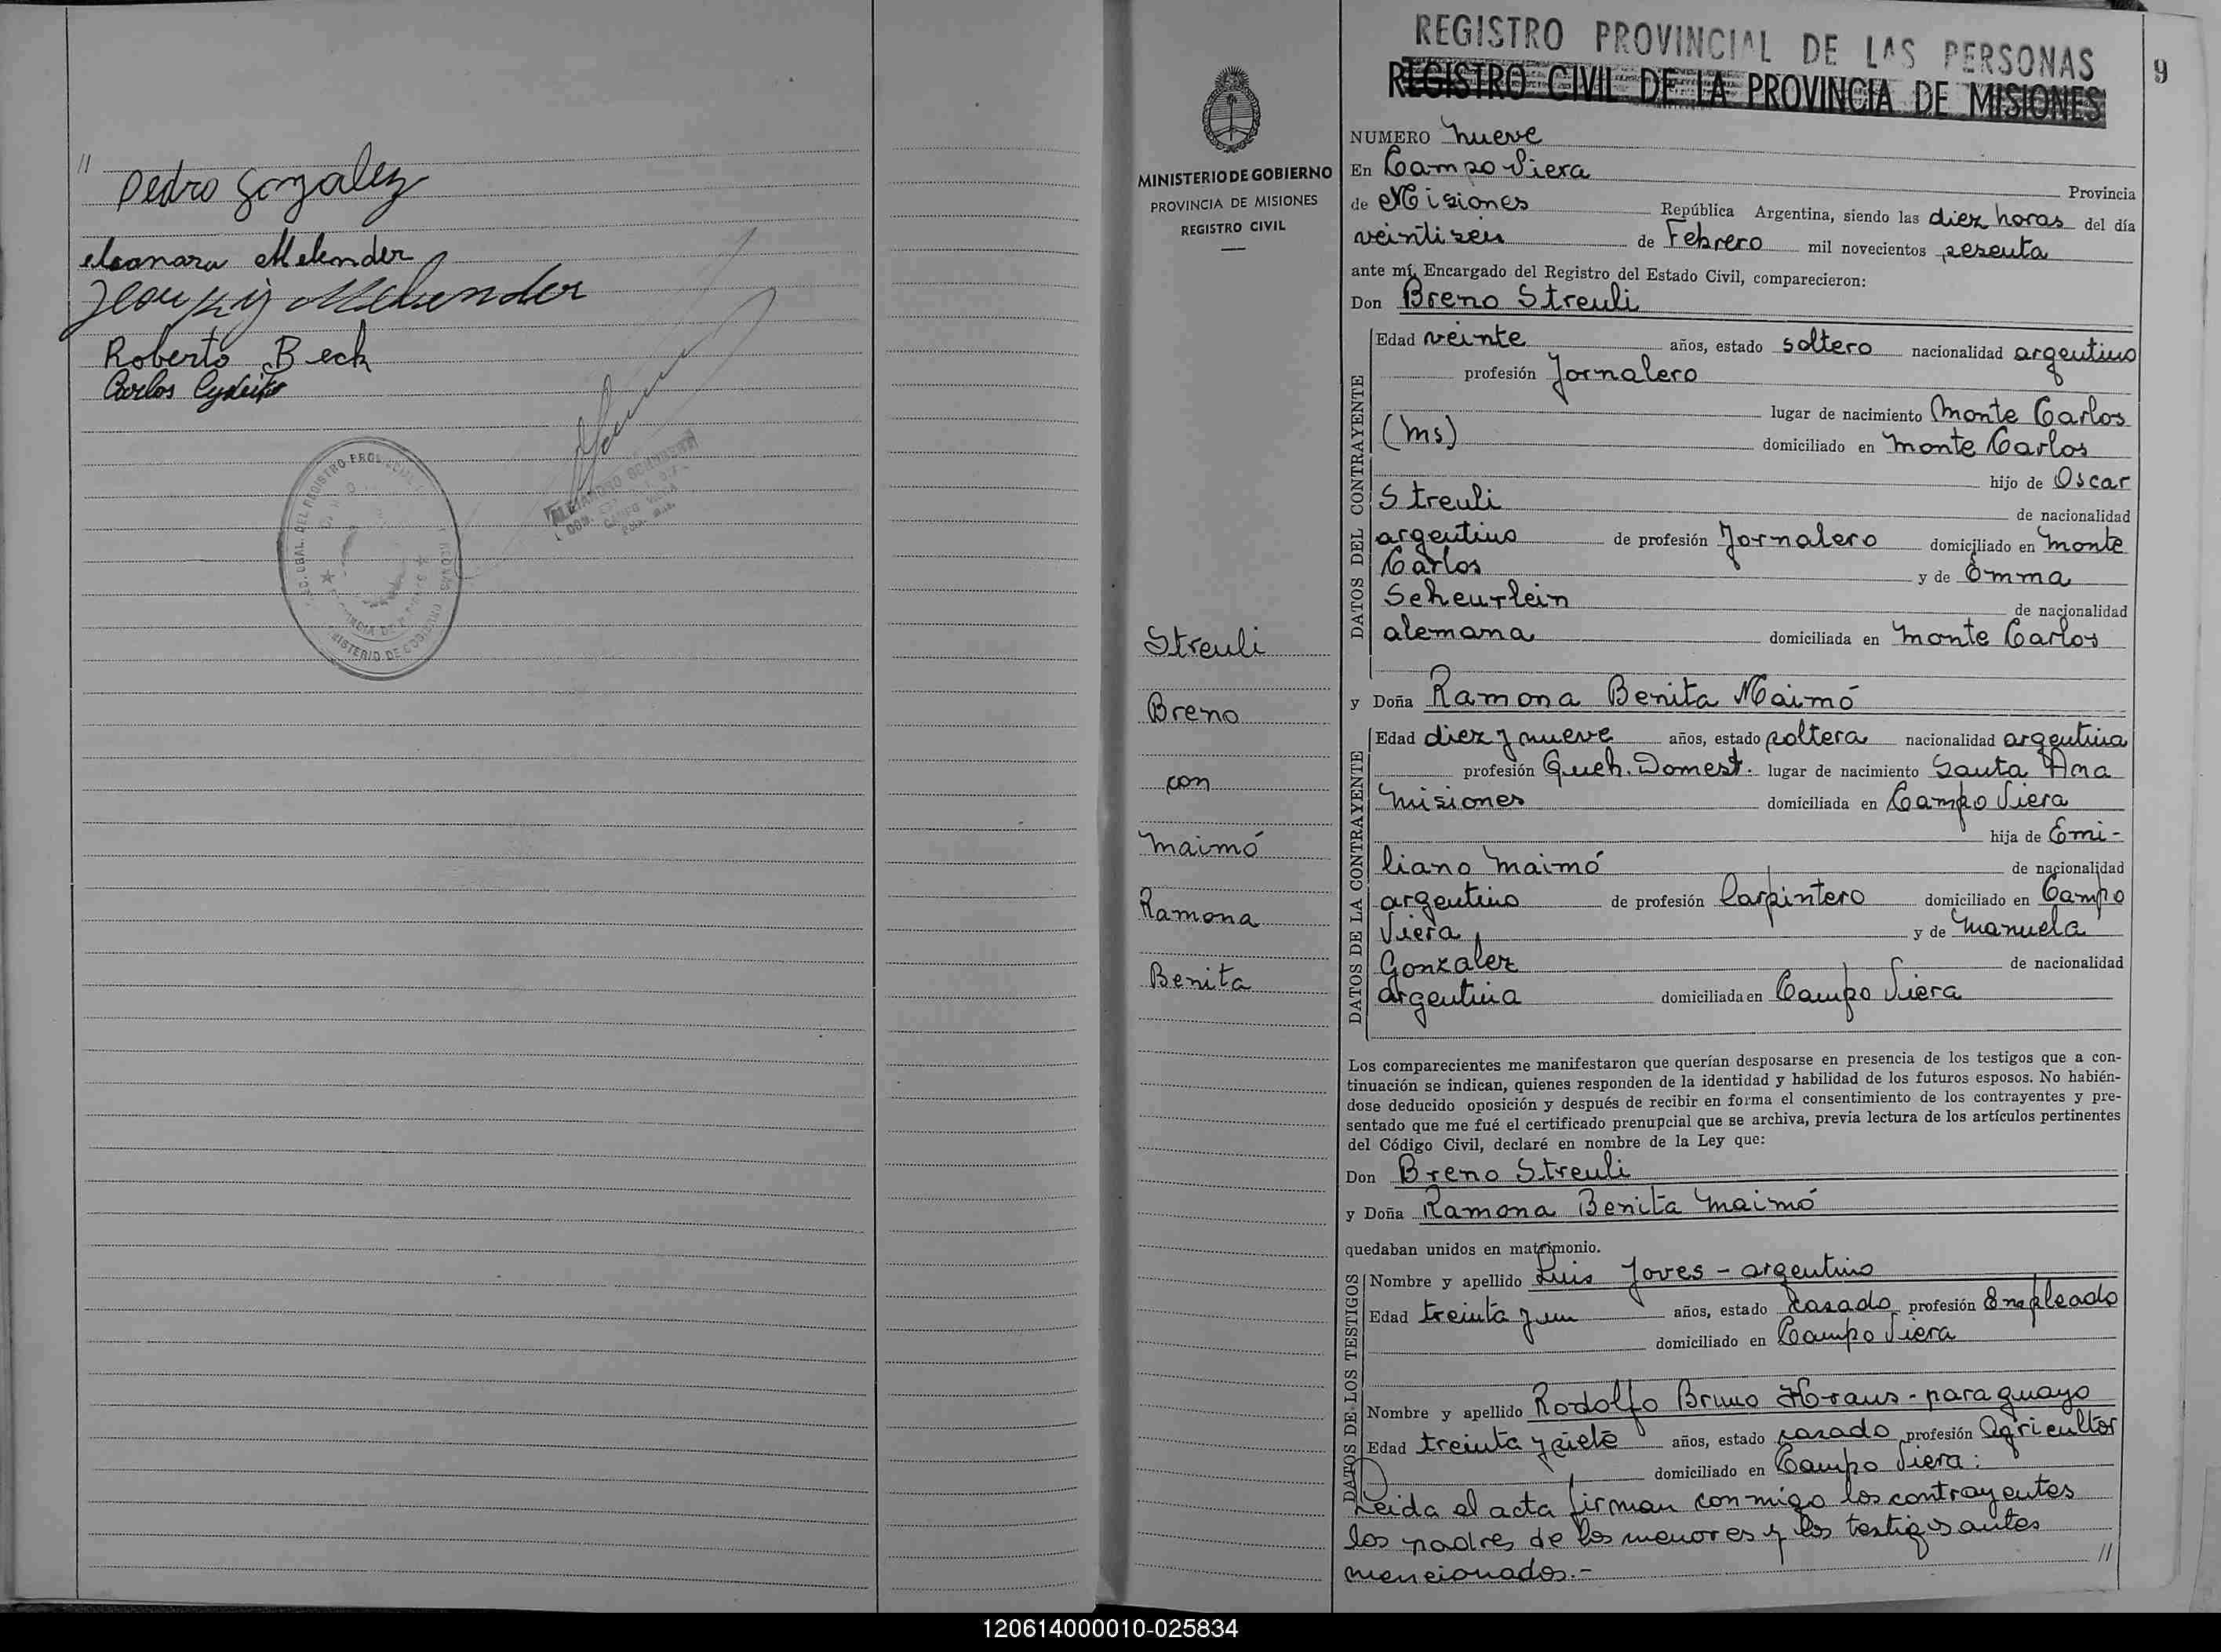 //
Pedro Gonzalez
eleonara Melender
Melender
Roberto Beck
Carlos
REGISTRO PROVINCIAL DE LAS PERSONAS
REGISTRO CIVIL DE LA PROVINCIA DE MISIONES
9
MINISTERIO DE GOBIERNO
PROVINCIA DE MISIONES
REGISTRO CIVIL
Streuli
Breno
con
Maimó
Ramona
Benita
NUMERO nueve
En Campo Viera Provincia
de Misiones República Argentina, siendo las diez horas del día
veintiseis de Febrero mil novecientos sesenta
ante mí, Encargado del Registro del Estado Civil, comparecieron:
Don Breno Streuli
DATOS DEL CONTRAYENTE
Edad veinte años, estado soltero nacionalidad argentino
profesión Jornalero
lugar de nacimiento Monte Carlos
(Ms) domiciliado en Monte Carlos
hijo de Oscar
Streuli de nacionalidad
argentino de profesión Jornalero domiciliado en Monte
Carlos y de Emma
Scheurlein de nacionalidad
alemana domiciliada en Monte Carlos
y Doña Ramona Benita Maimó
DATOS DE LA CONTRAYENTE
Edad diez y nueve años, estado soltera nacionalidad argentina
profesión Queh. Domest. lugar de nacimiento Santa Ana
Misiones domiciliada en Campo Viera
hija de Emi-
liano Maimó de nacionalidad
argentino de profesión Carpintero domiciliado en Campo
Viera, y de Manuela
Gonzalez de nacionalidad
argentina domiciliada en Campo Viera
Los comparecientes me manifestaron que querían desposarse en presencia de los testigos que a con-
tinuación se indican, quienes responden de la identidad y habilidad de los futuros esposos. No habién-
dose deducido oposición y después de recibir en forma el consentimiento de los contrayentes y pre-
sentado que me fué el certificado prenupcial que se archiva, previa lectura de los artículos pertinentes
del Código Civil, declaré en nombre de la Ley que:
Don Breno Streuli
y Doña Ramona Benita Maimó
quedaban unidos en matrimonio.
DATOS DE LOS TESTIGOS
Nombre y apellido Luis Joves - argentino
Edad treinta y un años, estado casado profesión Empleado
domiciliado en Campo Viera
Nombre y apellido Rodolfo Bruno Kraus - paraguayo
Edad treinta y siete años, estado casado profesión Agricultor
domiciliado en Campo Viera:
Leida el acta firman conmigo los contrayentes
los padres de los menores y los testigos antes
mencionados.- //
120614000010-025834